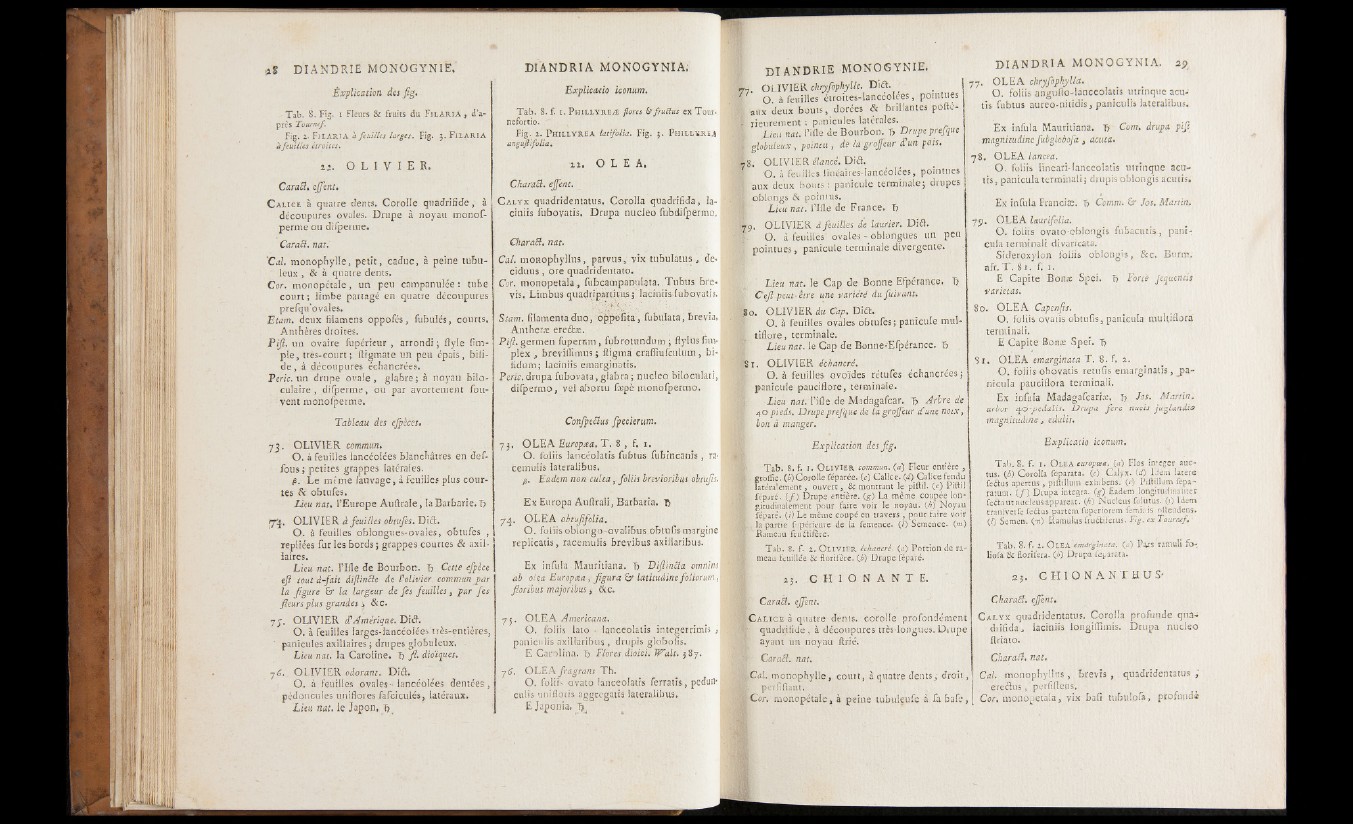 28 DIANDRIE MONOGYNIE.
Explication des fig.
Tab. 8. Fig. 1 Fleurs & fruits du FILARIA, d'a-
près Tournef.
Fig. 2. FILARIA à feuilles larges. Fig. 3. FILARIA
à feuilles étroites.
22. OLIVIER.
Caract. essent.
CALICE à quatre dents. Corolle quadrifide, à
découpures ovales. Drupe à noyau monos-
perme ou disperme.
Caract. nat.
Cal. monophylle, petit, caduc, à peine tubu-
leux, & à quatre dents.
Cor. monopétale, un peu campanulée: tube
court; limbe partagé en quatre découpures
presqu'ovales.
Etam. deux filamens opposés, subulés, courts.
Anthères droites.
Pist. un ovaire supérieur, arrondi; style sim-
ple, très-court; stigmate un peu épais, bifi-
de, à découpures échancrées.
Peric. un drupe ovale, glabre; à noyau bilo-
culaire, disperme, ou par avortement sou-
vent monosperme.
Tableau des espèces.
73. OLIVIER commun.
O. à feuilles lancéolées blanchâtres en des-
sous; petites grappes latérales.
β. Le même sauvage, à feuilles plus cour-
tes & obtuses.
Lieu nat. l'Europe Australe, la Barbarie. ♄
74. OLIVIER à feuilles obtuses. Dict.
O. à feuilles oblongues-ovales, obtuses,
repliées sur les bords; grappes courtes & axil-
laires.
Lieu nat. l'Isle de Bourbon. ♄ Cette espèce
est tout-à-fait distincte de l'olivier commun par
la figure & la largeur de ses feuilles, par ses
fleurs plus grandes, &c.
75. OLIVIER d'Amérique. Dict.
O. à feuilles larges-lancéolées très-entières,
panicules axillaires; drupes globuleux.
Lieu nat. la Caroline. ♄ fl. dioïques.
76. OLIVIER odorant. Dict.
O. à feuilles ovales-lancéolées dentées,
pédoncules uniflores fasciculés, latéraux.
Lieu nat. le Japon. ♄
DIANDRIA MONOGYNIA.
Explicatio iconum.
Tab. 8. f. 1. PHILLYREÆ flores & fructus ex Tour-
nefortio.
Fig. 2. PHILLYREA latifolia. Fig. 3. PHILLYREA
angustifolia.
22. OLEA.
Charact. essent.
CALYX quadridentatus. Corolla quadrifida, la-
ciniis subovatis. Drupa nucleo subdispermo.
Charact. nat.
Cal. monophyllus, parvus, vix tubulatus, de-
ciduus, ore quadridentato.
Cor. monopetala, subcampanulata. Tubus bre-
vis. Limbus quadripartitus; laciniis subovatis.
Stam. filamenta duo, opposita, subulata, brevia.
Antheræ erectæ.
Pist. germen superum, subrotundum; stylus sim-
plex, brevissimus; stigma crassiusculum, bi-
fidum; laciniis emarginatis.
Peric. drupa subovata, glabra; nucleo biloculari,
dispermo, vel abortu sæpè monospermo.
Conspectus specierum.
73. OLEA Europæa. T. 8, f. 1.
O. foliis lanceolatis subtus subincanis, ra-
cemulis lateralibus.
β. Eadem non culta, foliis brevioribus obtusis.
Ex Europa Australi, Barbaria. ♄
74. OLEA obtusifolia.
O. foliis oblongo-ovalibus obtusis margine
replicatis, racemulis brevibus axillaribus.
Ex insula Mauritiana. ♄ Distincta omnino
ab olea Europæa, figura & latitudine foliorum,
floribus majoribus, &c.
75. OLEA Americana.
O. foliis lato-lanceolatis integerrimis,
paniculis axillaribus, drupis globosis.
E Carolina. ♄ Flores dioici. Walt. 387.
76. OLEA fragrans Th.
O. foliis ovato lanceolatis serratis, pedun-
culis unifloris aggregatis lateralibus.
E Japonia. ♄
DIANDRIE MONOGYNIE.
77. OLIVIER chrysophylle. Dict.
O. à feuilles étroites-lancéolées, pointues
aux deux bouts, dorées & brillantes posté-
rieurement: panicules latérales.
Lieu nat. l'isle de Bourbon. ♄ Drupe presque
globuleux, pointu, de la grosseur d'un pois.
78. OLIVIER élancé. Dict.
O. à feuilles linéaires-lancéolées, pointues
aux deux bouts: panicule terminale; drupes
oblongs & pointus.
Lieu nat. l'Isle de France. ♄
79. OLIVIER à feuilles de laurier. Dict.
O. à feuilles ovales-oblongues un peu
pointues, panicule terminale divergente.
Lieu nat. le Cap de Bonne Espérance. ♄
C'est peut-être une variété du suivant.
80. OLIVIER du Cap. Dict.
O. à feuilles ovales obtuses; panicule mul-
tiflore, terminale.
Lieu nat. le Cap de Bonne-Espérance. ♄
81. OLIVIER échancré.
O. à feuilles ovoïdes rétuses échancrées;
panicule pauciflore, terminale.
Lieu nat. l'isle de Madagascar. ♄ Arbre de
40 pieds. Drupe presque de la grosseur d'une noix,
bon à manger.
Explication des fig.
Tab. 8. f. 1. OLIVIER commun. (a) Fleur entière,
grossie. (b) Corolle séparée. (c) Calice. (d) Calice fendu
latéralement, ouvert, & montrant le pistil. (e) Pistil
séparé. (f) Drupe entière. (g) La même coupée lon-
gitudinalement pour faire voir le noyau. (h) Noyau
séparé. (i) Le même coupé en travers, pour faire voir
la partie supérieure de la semence. (l) Semence. (m)
Rameau fructifère.
Tab. 8. f. 2. OLIVIER échancré. (a) Portion de ra-
meau feuillée & florifère. (b) Drupe séparé.
23. CHIONANTE.
Caract. essent.
CALICE à quatre dents. corolle profondément
quadrifide, à découpures très longues. Drupe
ayant un noyau strié.
Caract. nat.
Cal. monophylle, court, à quatre dents, droit,
persistant.
Cor. monopétale, à peine tubuleuse à sa base,
DIANDRIA MONOGYNIA. 29
77. OLEA chrysophylla.
O. foliis angusto-lanceolatis utrinque acu-
tis subtus aureo-nitidis, paniculis lateralibus.
Ex insula Mauritiana. ♄ Com. drupa pisi
magnitudine subglobosa, acuta.
78. OLEA lancea.
O. foliis lineari-lanceolatis utrinque acu-
tis, panicula terminali; drupis oblongis acutis.
Ex insula Franciæ. ♄ Comm. & Jos. Martin.
79. OLEA laurifolia.
O. foliis ovato-oblongis subacutis, pani-
cula terminali divaricata.
Sideroxylon foliis oblongis, &c. Burm.
afr. T. 81. f. 1.
E Capite Bonæ Spei. ♄ Fortè sequentis
varietas.
80. OLEA Capensis.
O. foliis ovatis obtusis, panicula multiflora
terminali.
E Capite Bonæ Spei. ♄
81. OLEA emarginata T. 8. f. 2.
O. foliis obovatis retusis emarginatis, pa-
nicula pauciflora terminali.
Ex insula Madagascariæ. ♄ Jos. Martin.
arbor 40-pedalis. Drupa fere nucis juglandis
magnitudine, edulis.
Explicatio iconum.
Tab. 8. f. 1. OLEA europæa. (a) Flos integer auc-
tus. (b) Corolla separata. (c) Calyx. (d) Idem latere
sectus apertus, pistillum exhibens. (e) Pistillum sepa-
ratum. (f) Drupa integra. (g) Eadem longitudinaliter
secta ut nucleus appareat. (h) Nucleus solutus. (i) Idem
transverse sectus partem superiorem seminis ostendens.
(l) Semen. (m) Ramulus fructiferus. Fig. ex Tournef.
Tab. 8. f. 2. OLEA emarginata. (a) Pars ramuli fo-
liosa & florifera. (b) Drupa separata.
23. CHIONANTHUS.
Charact. essent.
CALYX quadridentatus. Corolla profunde qua-
drifida, laciniis longissimis. Drupa nucleo
striato.
Charact. nat.
Cal. monophyllus, brevis, quadridentatus,
erectus, persistens.
Cor. monopetala, vix basi tubulosa, profunde